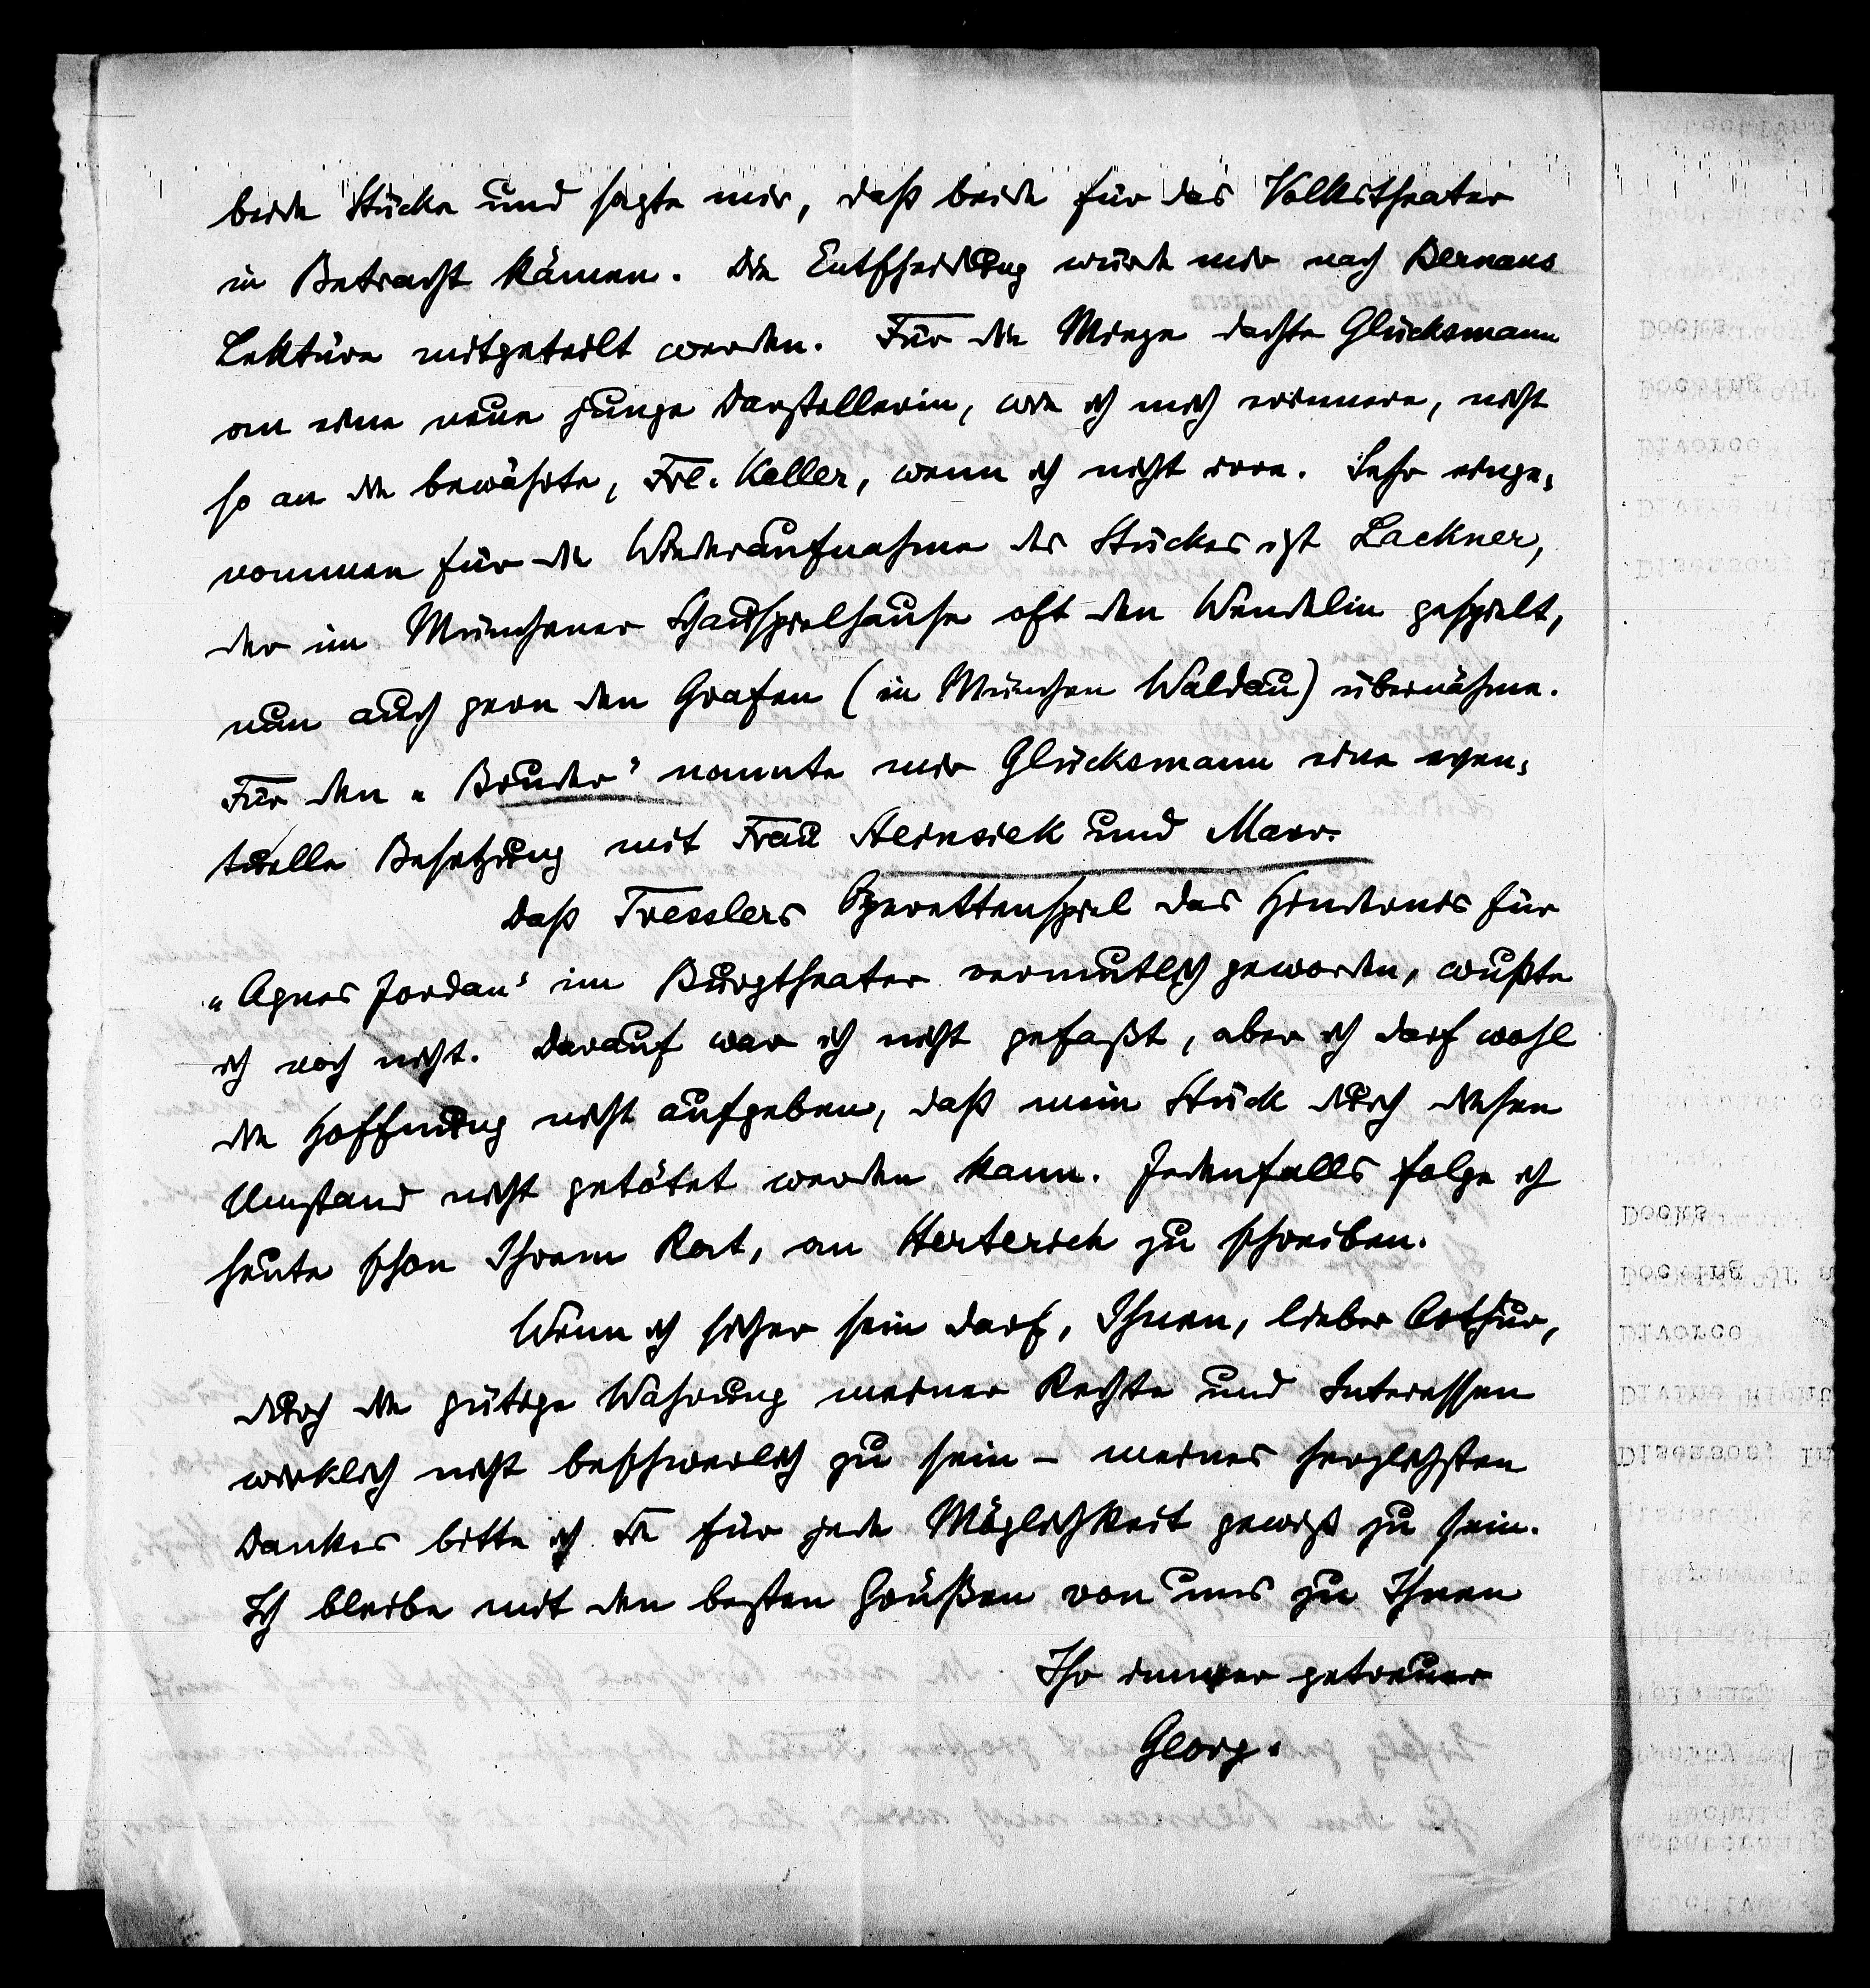 beide Stücke und sagte mir, daß beide für das Volkstheater
in Betracht kämen. Die Entscheidung würde mir nach Bernaus
Lektüre mitgeteilt werden. Für die Mieze dachte Glücksmann
an eine neue junge Darstellerin, wie ich mich erinnere, nicht
so an die bewährte, Frl. Keller, wenn ich nicht irre. Sehr einge-
nommen für die Wiederaufnahme des Stückes ist Lackner,
der im Münchener Schauspielhause oft den Wendelin gespielt,
nun auch gern den Grafen (in München Waldau) übernähme.
Für den „Bruder" nannte mir Glücksmann eine even-
tuelle Besetzung mit Frau Steinsiek und Marr.
Daß Tresslers Operettenspiel das Hindernis für
„Agnes Jordan" im Burgtheater vermutlich geworden, wußte
ich noch nicht. Darauf war ich nicht gefaßt, aber ich darf wohl
die Hoffnung nicht aufgeben, daß mein Stück durch diesen
Umstand nicht getötet werden kann. Jedenfalls folge ich
heute schon Ihrem Rat, an Herterich zu schreiben.
Wenn ich sicher sein darf, Ihnen, lieber Arthur,
durch die gütige Wahrung meiner Rechte und Interessen
wirklich nicht beschwerlich zu sein – meines herzlichsten
Dankes bitte ich Sie für jede Möglichkeit gewiß zu sein.
Ich bleibe mit den besten Grüßen von uns zu Ihnen
Ihr immer getreuer
Georg.
Docks
Docking
Divorce